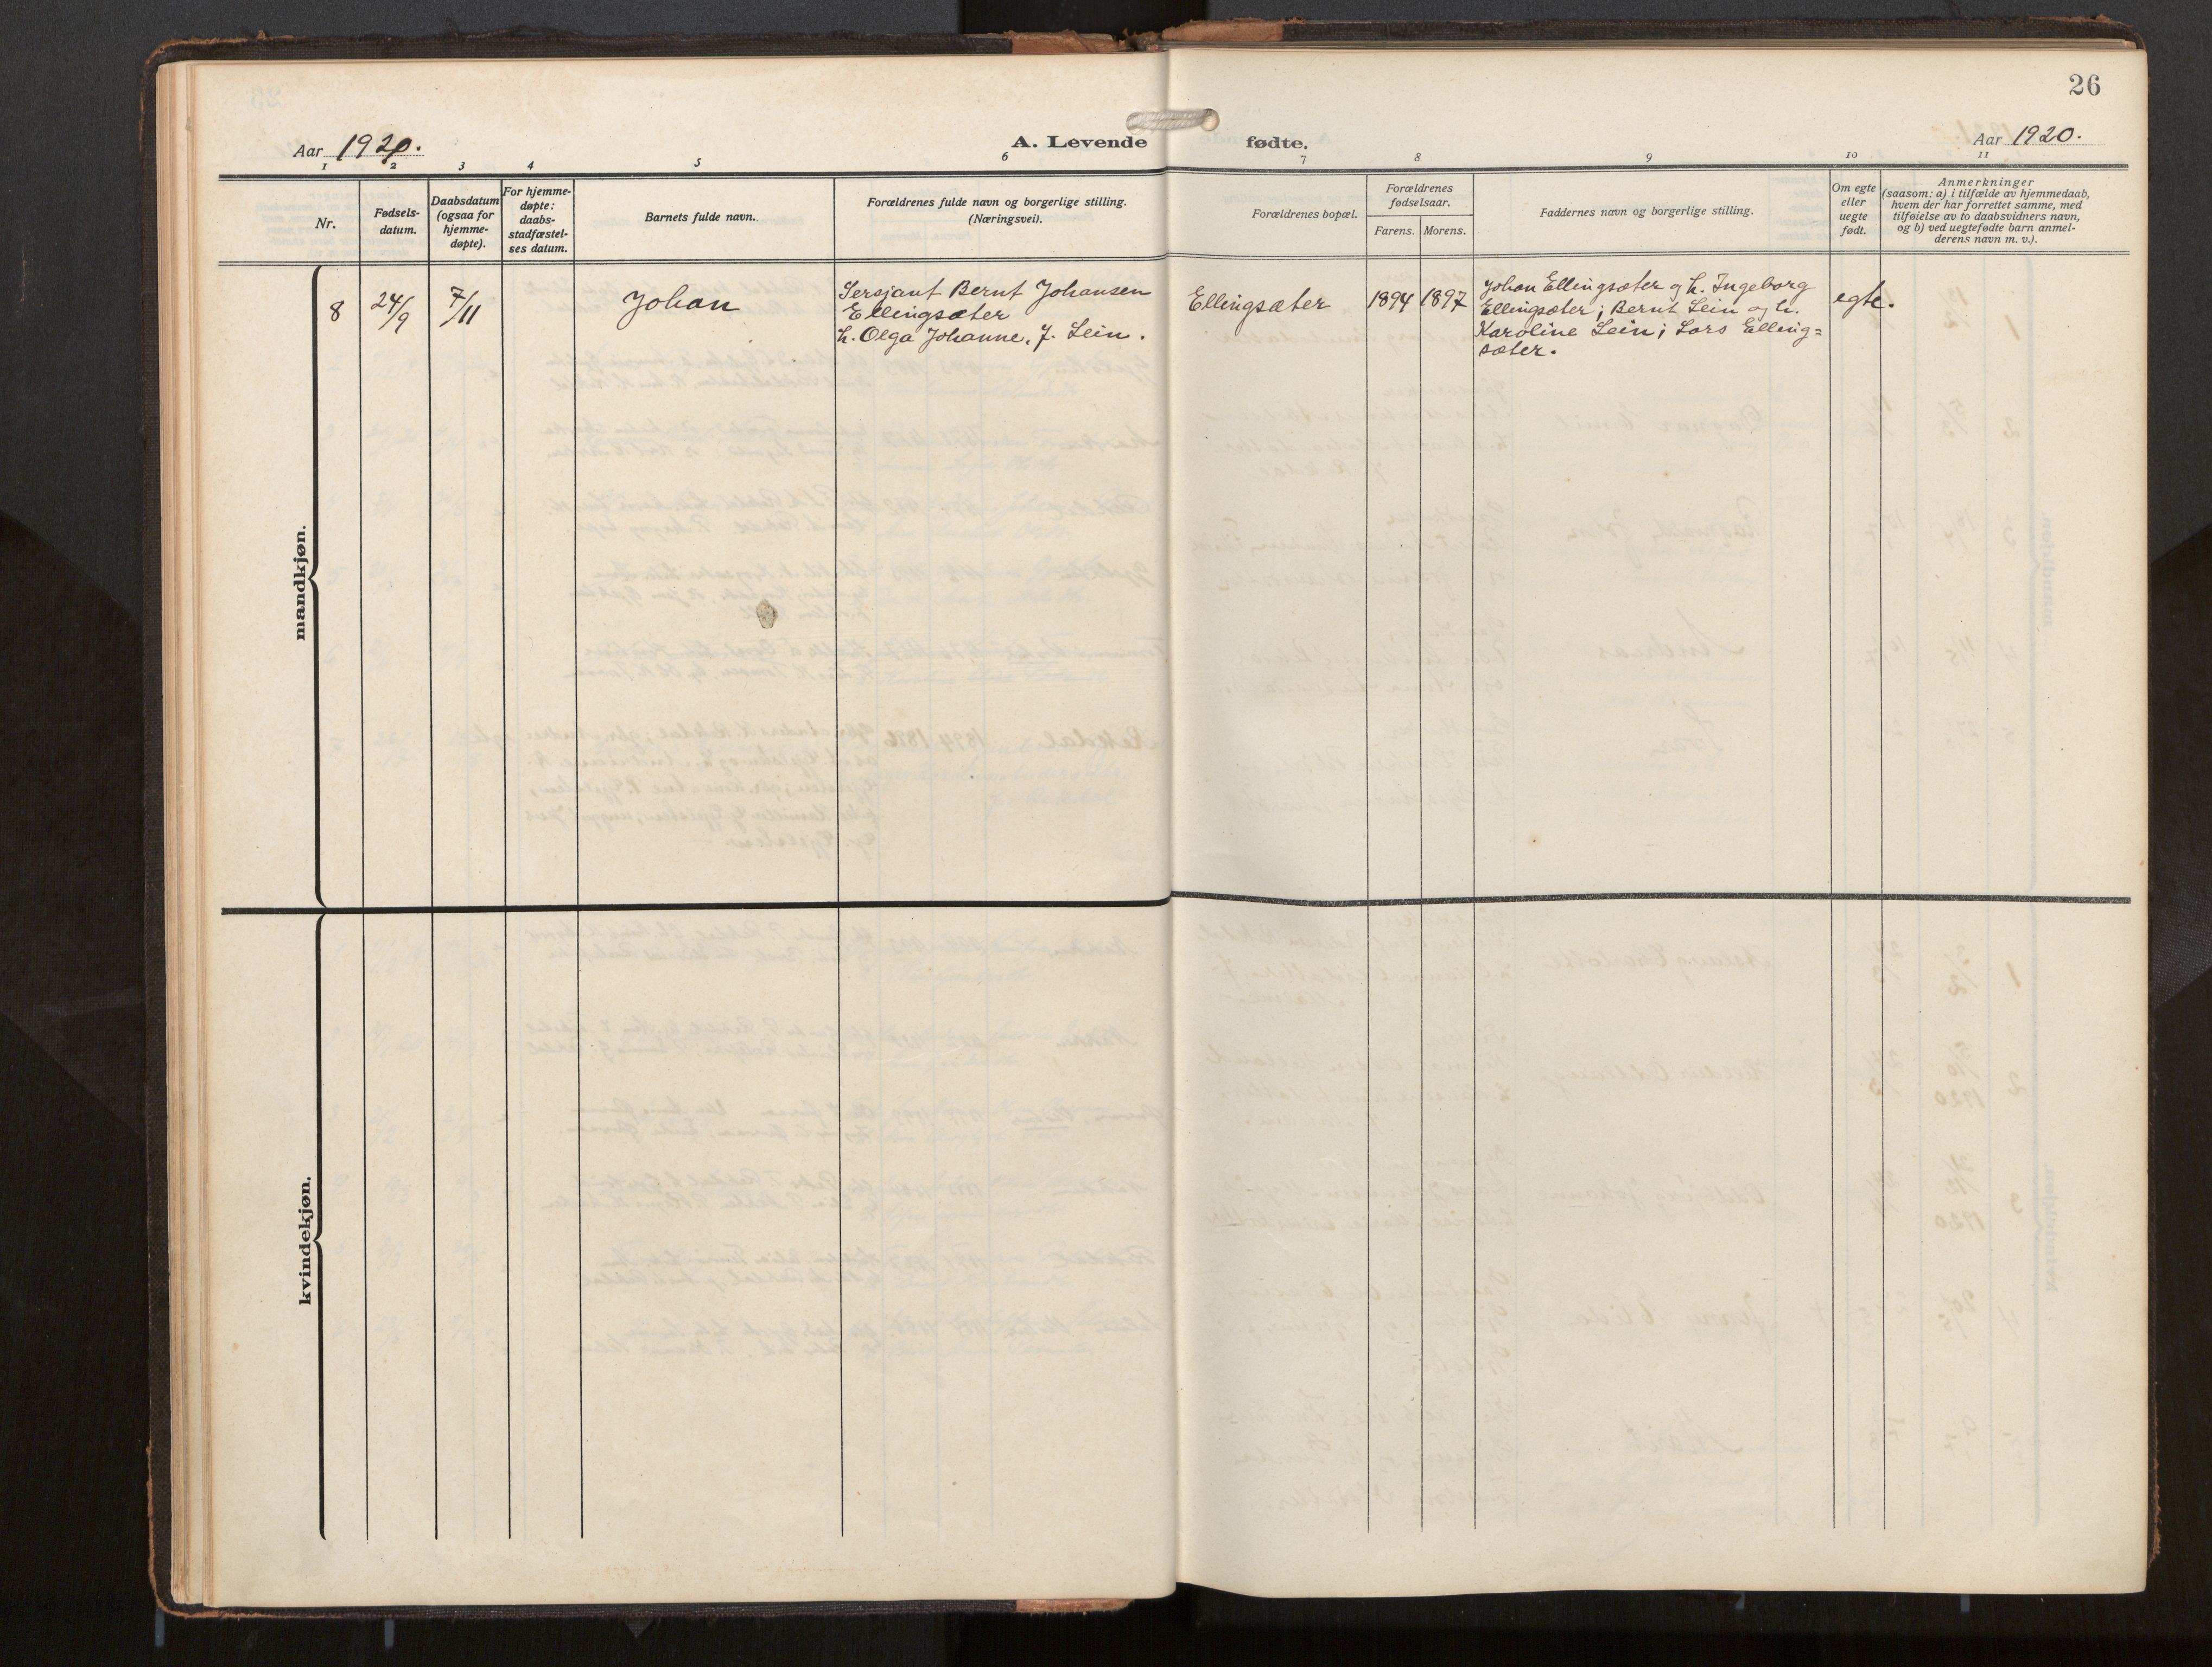 26
Aar 1920.
A. Levende fødte.
Aar 1920.
1 2 3 4 5 6 7 8 9 10 11
Nr.
Fødsels-
datum.
Daabsdatum
(ogsaa for
hjemme-
døpte).
For hjemme-
døpte:
daabs-
stadfæstel-
ses datum.
Barnets fulde navn.
Forældrenes fulde navn og borgerlige stilling.
(Næringsvei).
Forældrenes bopæl.
Forældrenes
fødselsaar.
Farens. Morens.
Faddernes navn og borgerlige stilling.
Om egte
eller
uegte
født.
Anmerkninger
(saasom: a) i tilfælde av hjemmedaab,
hvem der har forrettet samme, med
tilføielse av to daabsvidners navn,
og b) ved uegtefødte barn anmel-
derens navn m. v.).
mandkjøn.
8
24/9
7/11
Johan
Sersjant Bernt Johansen
Ellingsæter
h. Olga Johanne, f. Lein.
Ellingsæter
1894 1897
Johan Ellingsæter og h. Ingeborg
Ellingsæter; Bernt Lein og h.
Karoline Lein; Lars Elling=
sæter.
egte.
kvindekjøn.